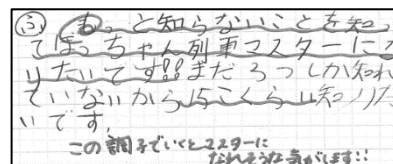 ふ もっと知らないことを知っ
てぼっちゃん列車マスターにな
りたいです!!まだ5つしか知れ
ていないから15こくらい知りた
いです。
この調子でいくとマスターに
なれそうな気がします!!